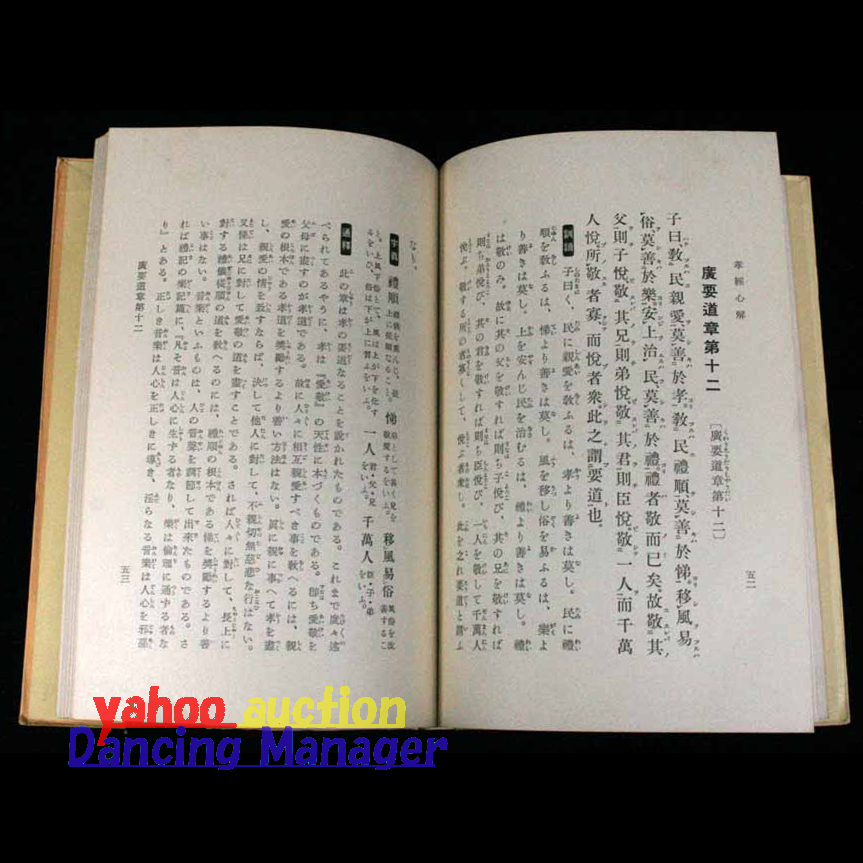 孝經心解
廣要道章第十二
〔廣要道章第十二〕
五二
子曰、敎民親愛、莫善於孝。敎民禮順、莫善於悌。移風易
俗、莫善於樂。安上治民、莫善於禮。禮者敬而已矣。故敬其
父則子悅、敬其兄則弟悅、敬其君則臣悅、敬一人而千萬
人悅。所敬者寡、而悅者衆。此之謂要道也。
訓讀 子曰く、民に親愛を敎ふるは、孝より善きは莫し。民に禮
順を敎ふるは、悌より善きは莫し。風を移し俗を易ふるは、樂よ
り善きは莫し。上を安んじ民を治むるは、禮より善きは莫し。禮
は敬のみ。故に其の父を敬すれば則ち子悅び、其の兄を敬すれば
則ち弟悅び、其の君を敬すれば則ち臣悅び、一人を敬して千萬人
悅ぶ。敬する所の者寡くして、悅ぶ者衆し。此を之れ要道と謂ふ
なり。
字義 禮順 悌 移風易俗
一人 君・父・兄をいふ。 千萬人 臣・子・弟をいふ。
通釋 此の章は孝の要道なることを說かれたものである。これまで度々述
べられてあるやうに、孝は『愛敬』の天性に本づくものである。卽ち愛敬を
父母に盡すのが孝道である。故に人々に相互親愛すべき事を敎へるには、親
愛の根本である孝道を奬勵するより善い方法はない。眞に親に事へて孝を盡
し、親愛の情を致すならば、決して他人に對して、不親切無慈悲な行はない。
又悌は兄に對して愛敬の道を盡すことである。されば人々に對して、長上に
對する禮儀從順の道を敎へるのには、禮順の根本である悌を奬勵するより善
い事はない。音樂といふものは、人の音聲を調節して出來たものである。さ
れば禮記の樂記篇に、『凡そ音は人心に生ずる者なり、樂は倫理に通ずる者な
り』とある。正しき音樂は人心を正しきに導き、淫らなる音樂は人心を邪惡
廣要道章第十二
五三
yahoo auction
Dancing Manager